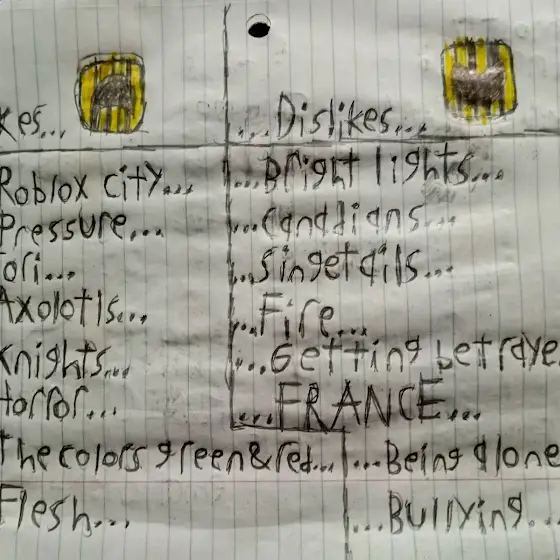 kes... ...Dislikes...
Roblox city... ...Bright lights...
Pressure... ...canadians...
ori... ...singetails...
Axolotls... ...Fire...
Knights... ...Getting betraye
Horror... ...FRANCE...
The colors green&red... ...Being alone
Flesh... ...Bullying...